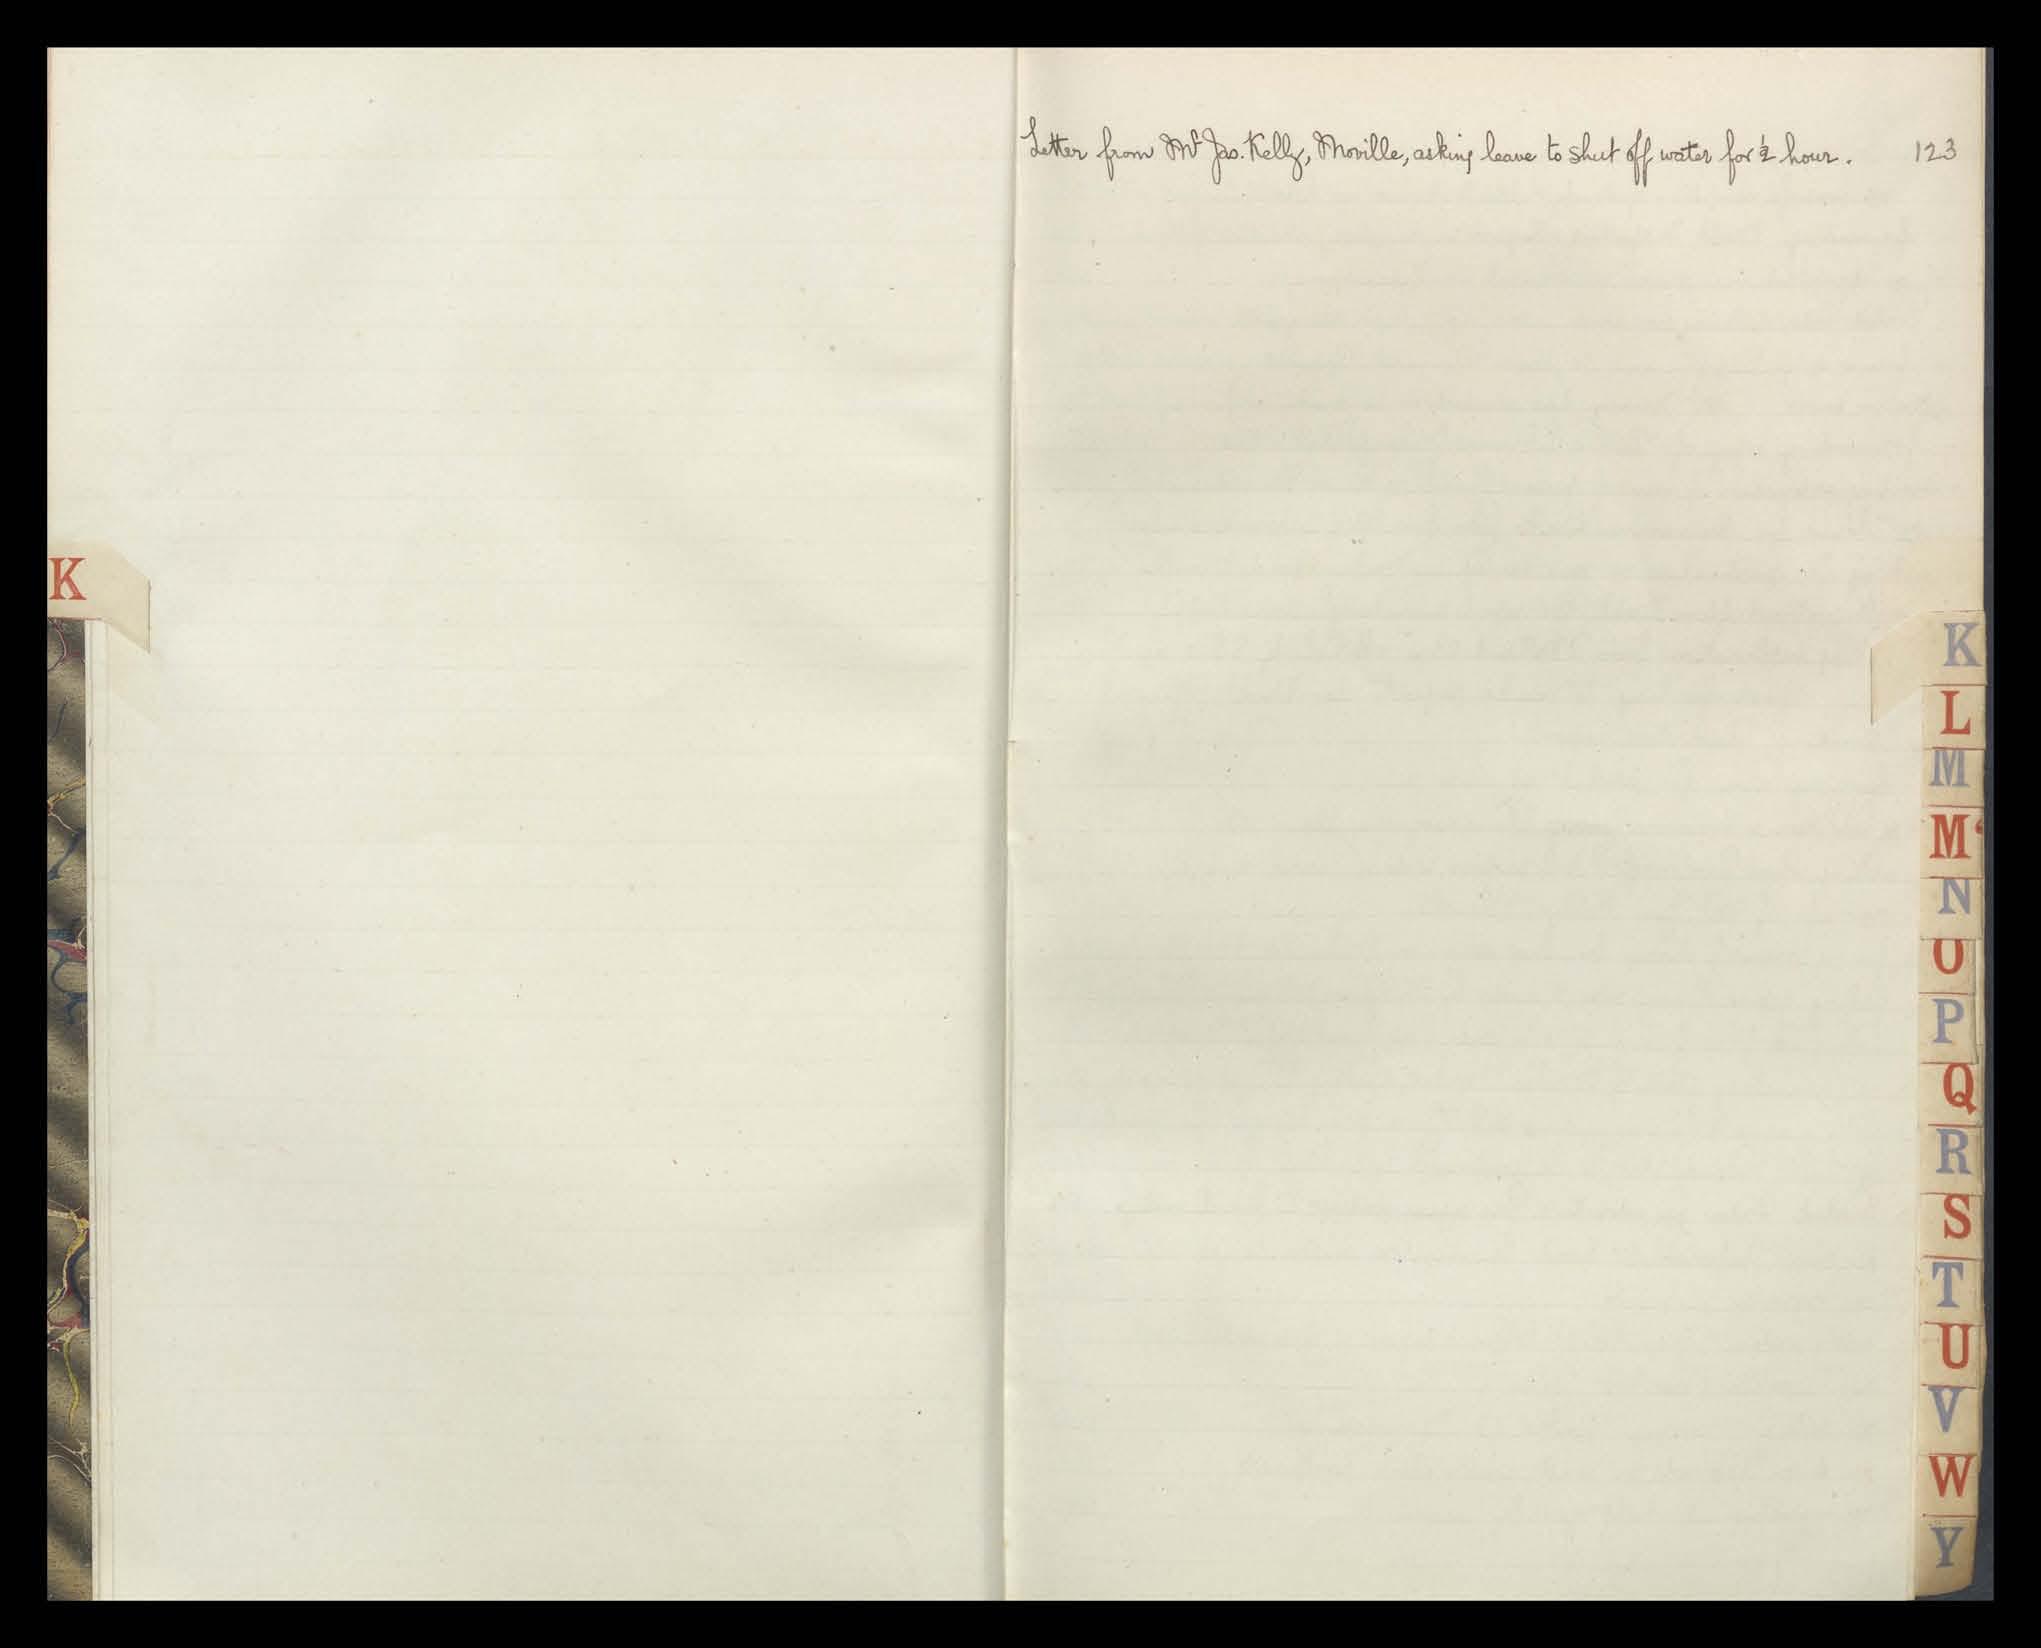 Letter from Mr Jas. Kelly, Moville, asking leave to shut off water for ½ hour. 123
K
K
L
M
Mc
N
O
P
Q
R
S
T
U
V
W
Y